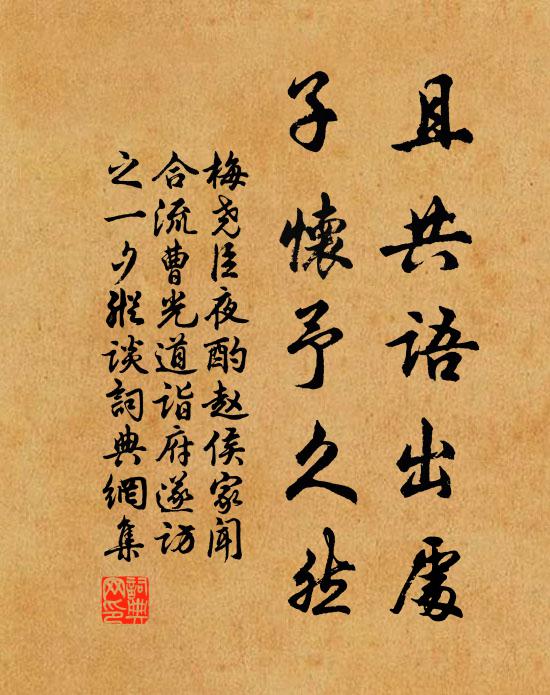 且共語出處
子懷予久然
梅尧臣夜酌赵侯家闻
合流曹光道诣府遂访
之一夕縱谈詞典網集
詞典網印